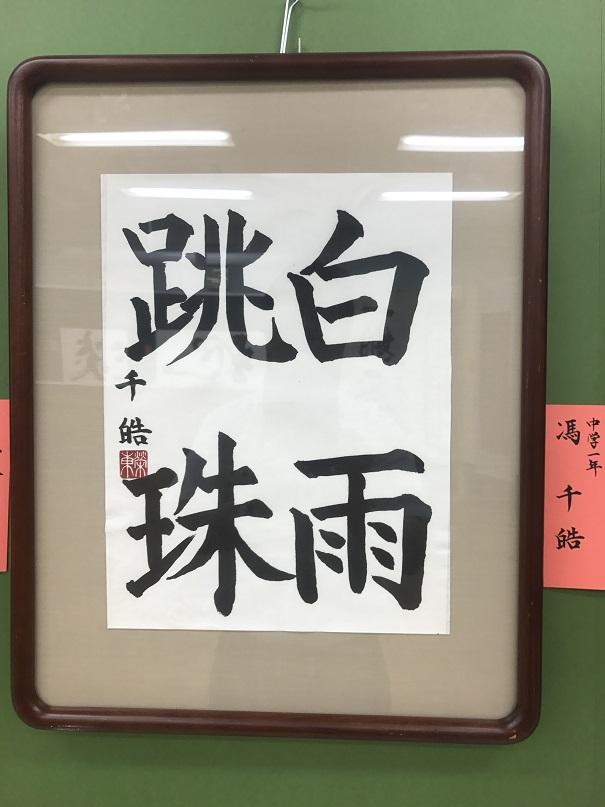 白雨
跳珠
千皓
榮東
中学一年
馮千皓